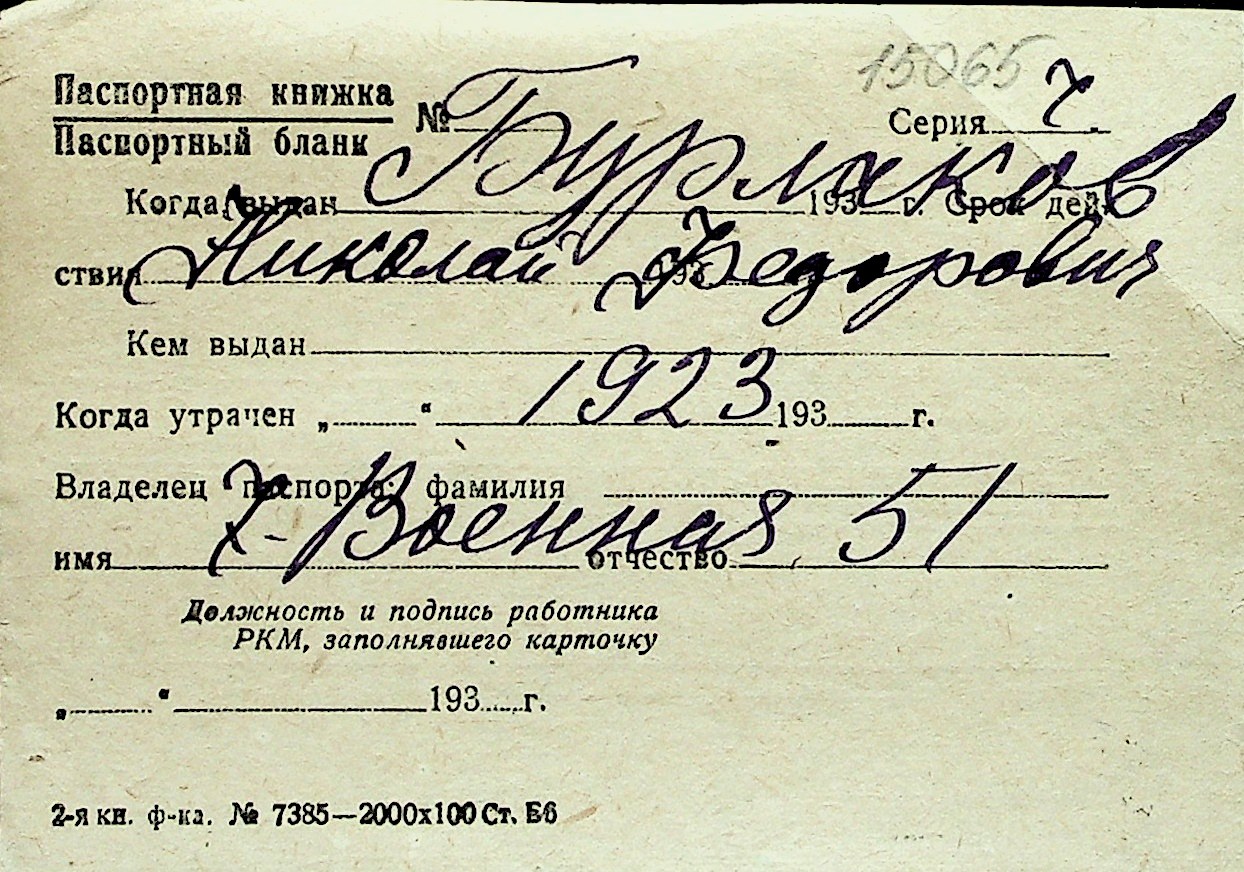 15065
Паспортная книжка
Паспортный бланк
№ Серия ч
Бурлаков
Когда выдан 193 г. Срок дей-
ствия 193
Николай Федорович
Кем выдан
1923
Когда утрачен „ “ 193 г.
Владелец паспорта: фамилия
Х- Военная 51
имя отчество
Должность и подпись работника
РКМ, заполнявшего карточку
„ “ 193 г.
2-я кн. ф-ка. № 7385—2000х100 Ст. Б6